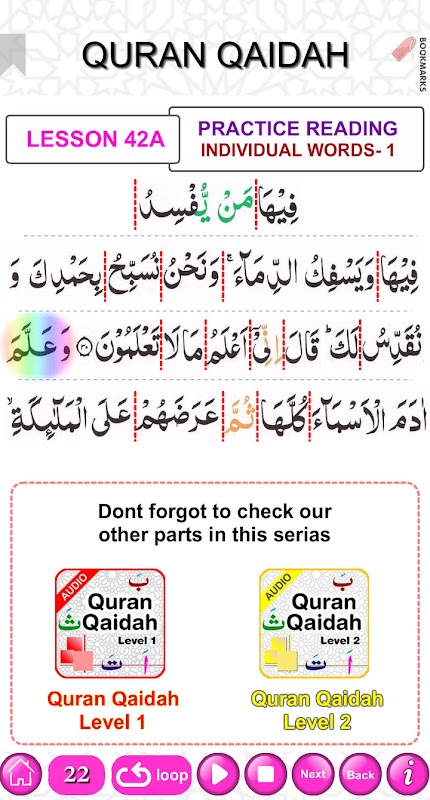 QURAN QAIDAH
BOOKMARKS
LESSON 42A
PRACTICE READING
INDIVIDUAL WORDS- 1
فِيْهَا مَنْ يُّفْسِدُ
فِيْهَا وَيَسْفِكُ الدِّمَآءَ ۚ وَنَحْنُ نُسَبِّحُ بِحَمْدِكَ وَ
نُقَدِّسُ لَكَ ؕ قَالَ اِنِّىْٓ اَعْلَمُ مَا لَا تَعْلَمُوْنَ ۝۳۰ وَعَلَّمَ
اٰدَمَ الْاَسْمَآءَ كُلَّهَا ثُمَّ عَرَضَهُمْ عَلَى الْمَلٰٓئِكَةِ ۙ
Dont forgot to check our
other parts in this serias
AUDIO
بَ
Quran
ثَ Qaidah
Level 1
تَ اَ
AUDIO
بَ
Quran
ثَ Qaidah
Level 2
تَ اَ
Quran Qaidah
Level 1
Quran Qaidah
Level 2
22
loop
Next
Back
i